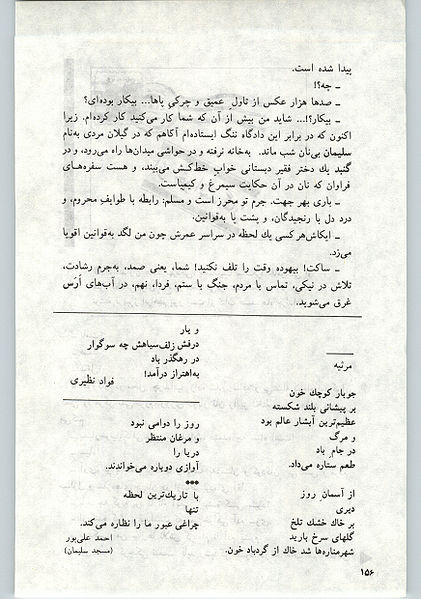 پیدا شده است.
ـ چه؟!
ـ صدها هزار عکس از تاول عمیق و چرکی پاها... بیکار بوده‌ای؟
ـ بیکار؟!... شاید من بیش از آن که شما کار می‌کنید کار کرده‌ام. زیرا
اکنون که در برابر این دادگاه ننگ ایستاده‌ام آگاهم که در گیلان مردی به‌نام
سلیمان بی‌نان شب ماند. به‌خانه نرفته و در حواشی میدان‌ها راه می‌رود، و در
گنبد یك دختر فقیر دبستانی خواب خط‌کش می‌بیند، و هست سفره‌های
فراوان که نان در آن حکایت سیمرغ و کیمیاست.
ـ باری بهر جهت. جرم تو محرز است و مسلم: رابطه با طوایف محروم، و
درد دل با رنجیدگان، و پشت پا به‌قوانین.
ـ ای‌کاش هر کسی یك لحظه در سراسر عمرش چون من لگد به‌قوانین اقویا
می‌زد.
ـ ساکت! بیهوده وقت را تلف نکنید! شما، یعنی صمد، به‌جرم رشادت،
تلاش در نیکی، تماس با مردم، جنگ با ستم، فردا، نهم، در آب‌های اَرَس
غرق می‌شوید.
مرثیه
جویبار کوچك خون
بر پیشانی بلند شکسته
عظیم‌ترین آبشار عالم بود
و مرگ
در جامِ باد
طعم ستاره می‌داد.
از آسمان روز
دیری
بر خاك خشك تلخ
گلهای سرخ بارید
شهر مناره‌ها شد خاك از گردباد خون.
و یار
درفش زلف سیاهش چه سوگوار
در رهگذر باد
به‌اهتزاز درآمد!
فواد نظیری
روز را دوامی نبود
و مرغان منتظر
دریا را
آوازی دوباره می‌خواندند.
•••
با تاریك‌ترین لحظه
تنها
چراغی عبور ما را نظاره می‌کند.
احمد علی‌پور
(مسجد سلیمان)
۱۵۶